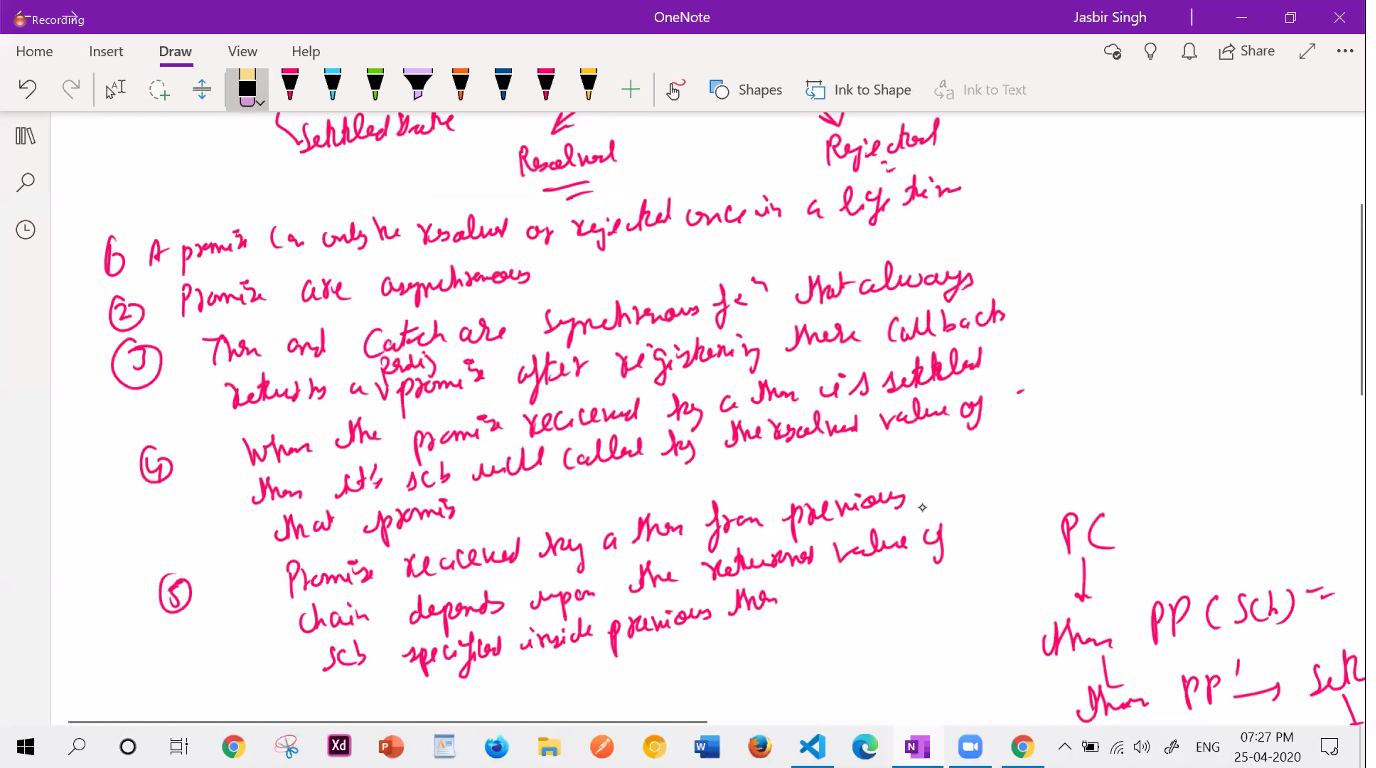 Recording
OneNote
Jasbir Singh
Home Insert Draw View Help
Share
Shapes
Ink to Shape
Ink to Text
Settled State
Resolved
Rejected
① A promise can only be resolved or rejected once in a life time
② Promise are asynchronous
③ Then and Catch are synchronous fcn that always
returns a pending promise after registering there callback
④ When the promise recieved by a then is settled
then it's scb will called by the resolved value of
that promis
⑤ Promise recieved by a then from previous
chain depends upon the returned value of
scb specified inside previous then
PC
then PP (scb)
then PP'
ENG
07:27 PM
25-04-2020